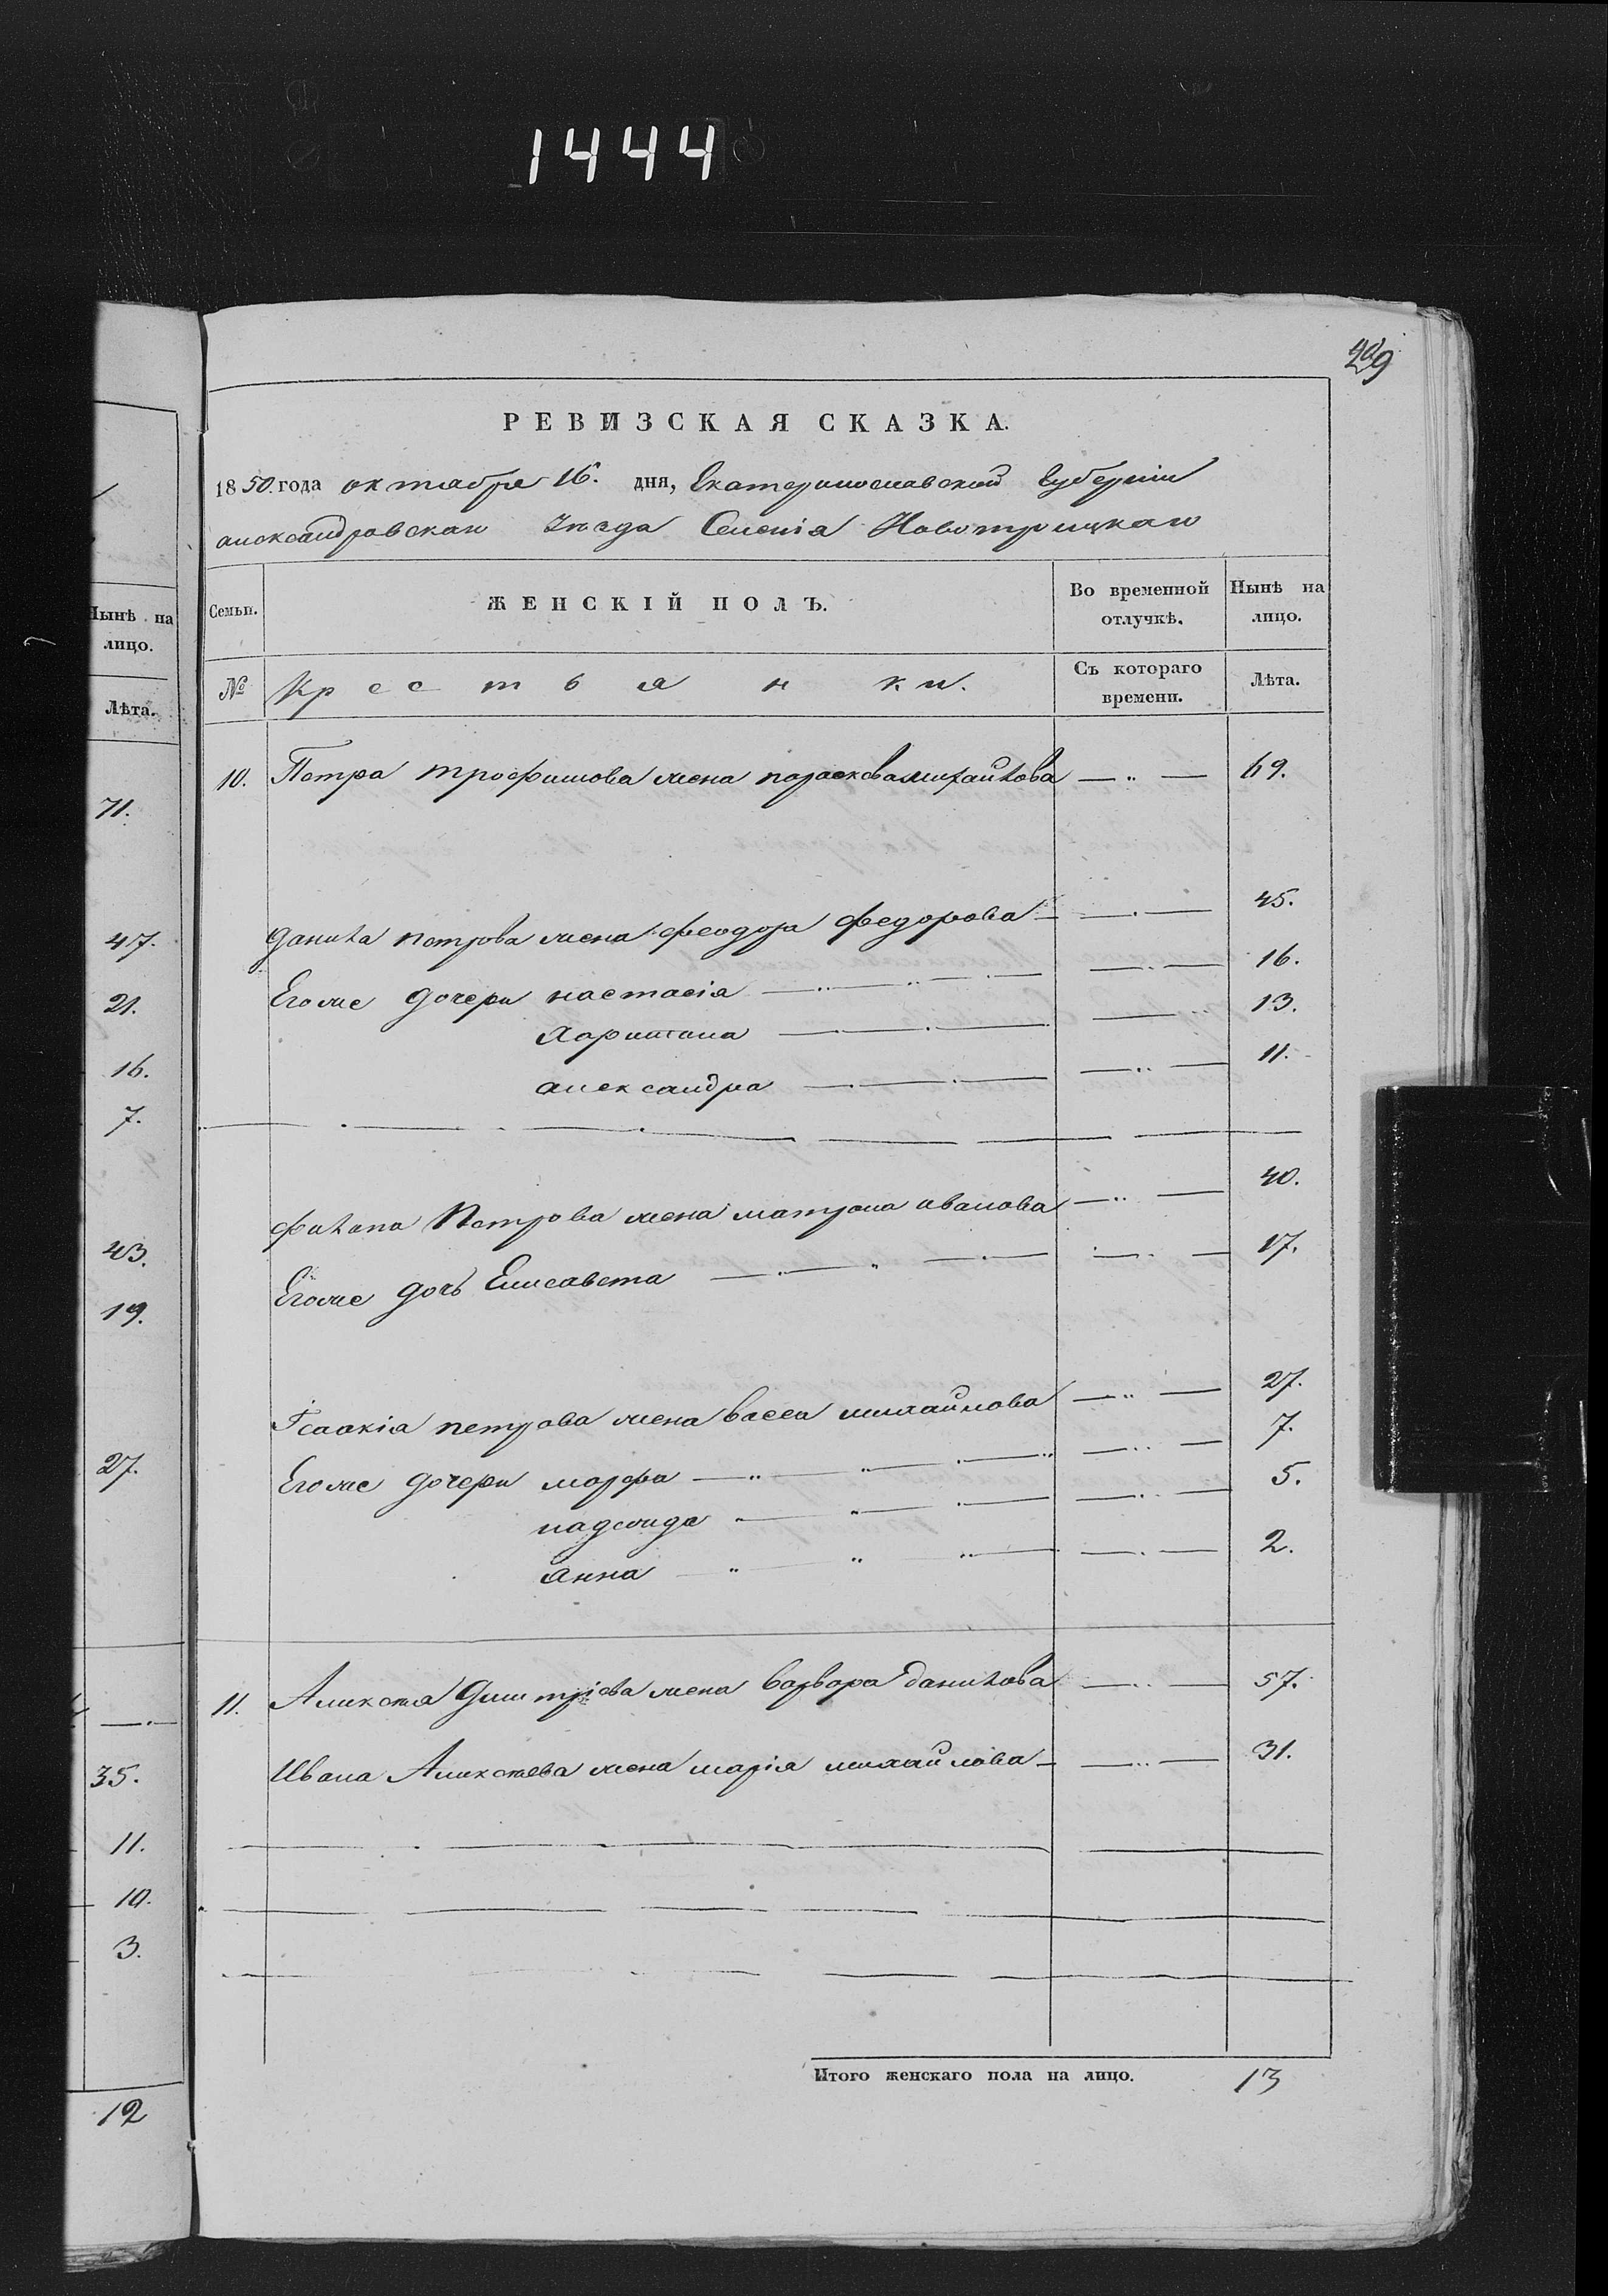 1444
РЕВИЗСКАЯ СКАЗКА.
1850. года октября 16. дня, Екатеринославской Губерніи
александровскаго Уѣзда Селенія Новотроицкаго
Нынѣ на лицо.
Лѣта.
71.
47.
21.
16.
7.
43.
19.
27.
35.
11.
10.
3.
12
Семьи. ЖЕНСКІЙ ПОЛЪ. Во временной отлучкѣ. Нынѣ на лицо.
№ Крестьянки. Съ котораго времени. Лѣта.
10. Петра трофимова жена парасковamихайлова 69.
Данила петрова жена феодора федорова 45.
Егоже дочери настасія 16.
Харитина 13.
александра 11.
филипа Петрова жена матрона иванова 40.
Егоже дочь Елисавета 17.
Ісаакія петрова жена васса михайлова 27.
Егоже дочери марфа 7.
надежда 5.
анна 2.
11. Аликсея Дмитріева жена варвара данилова 57.
Ивана Аликсѣева жена марія михайлова 31.
Итого женскаго пола на лицо. 13